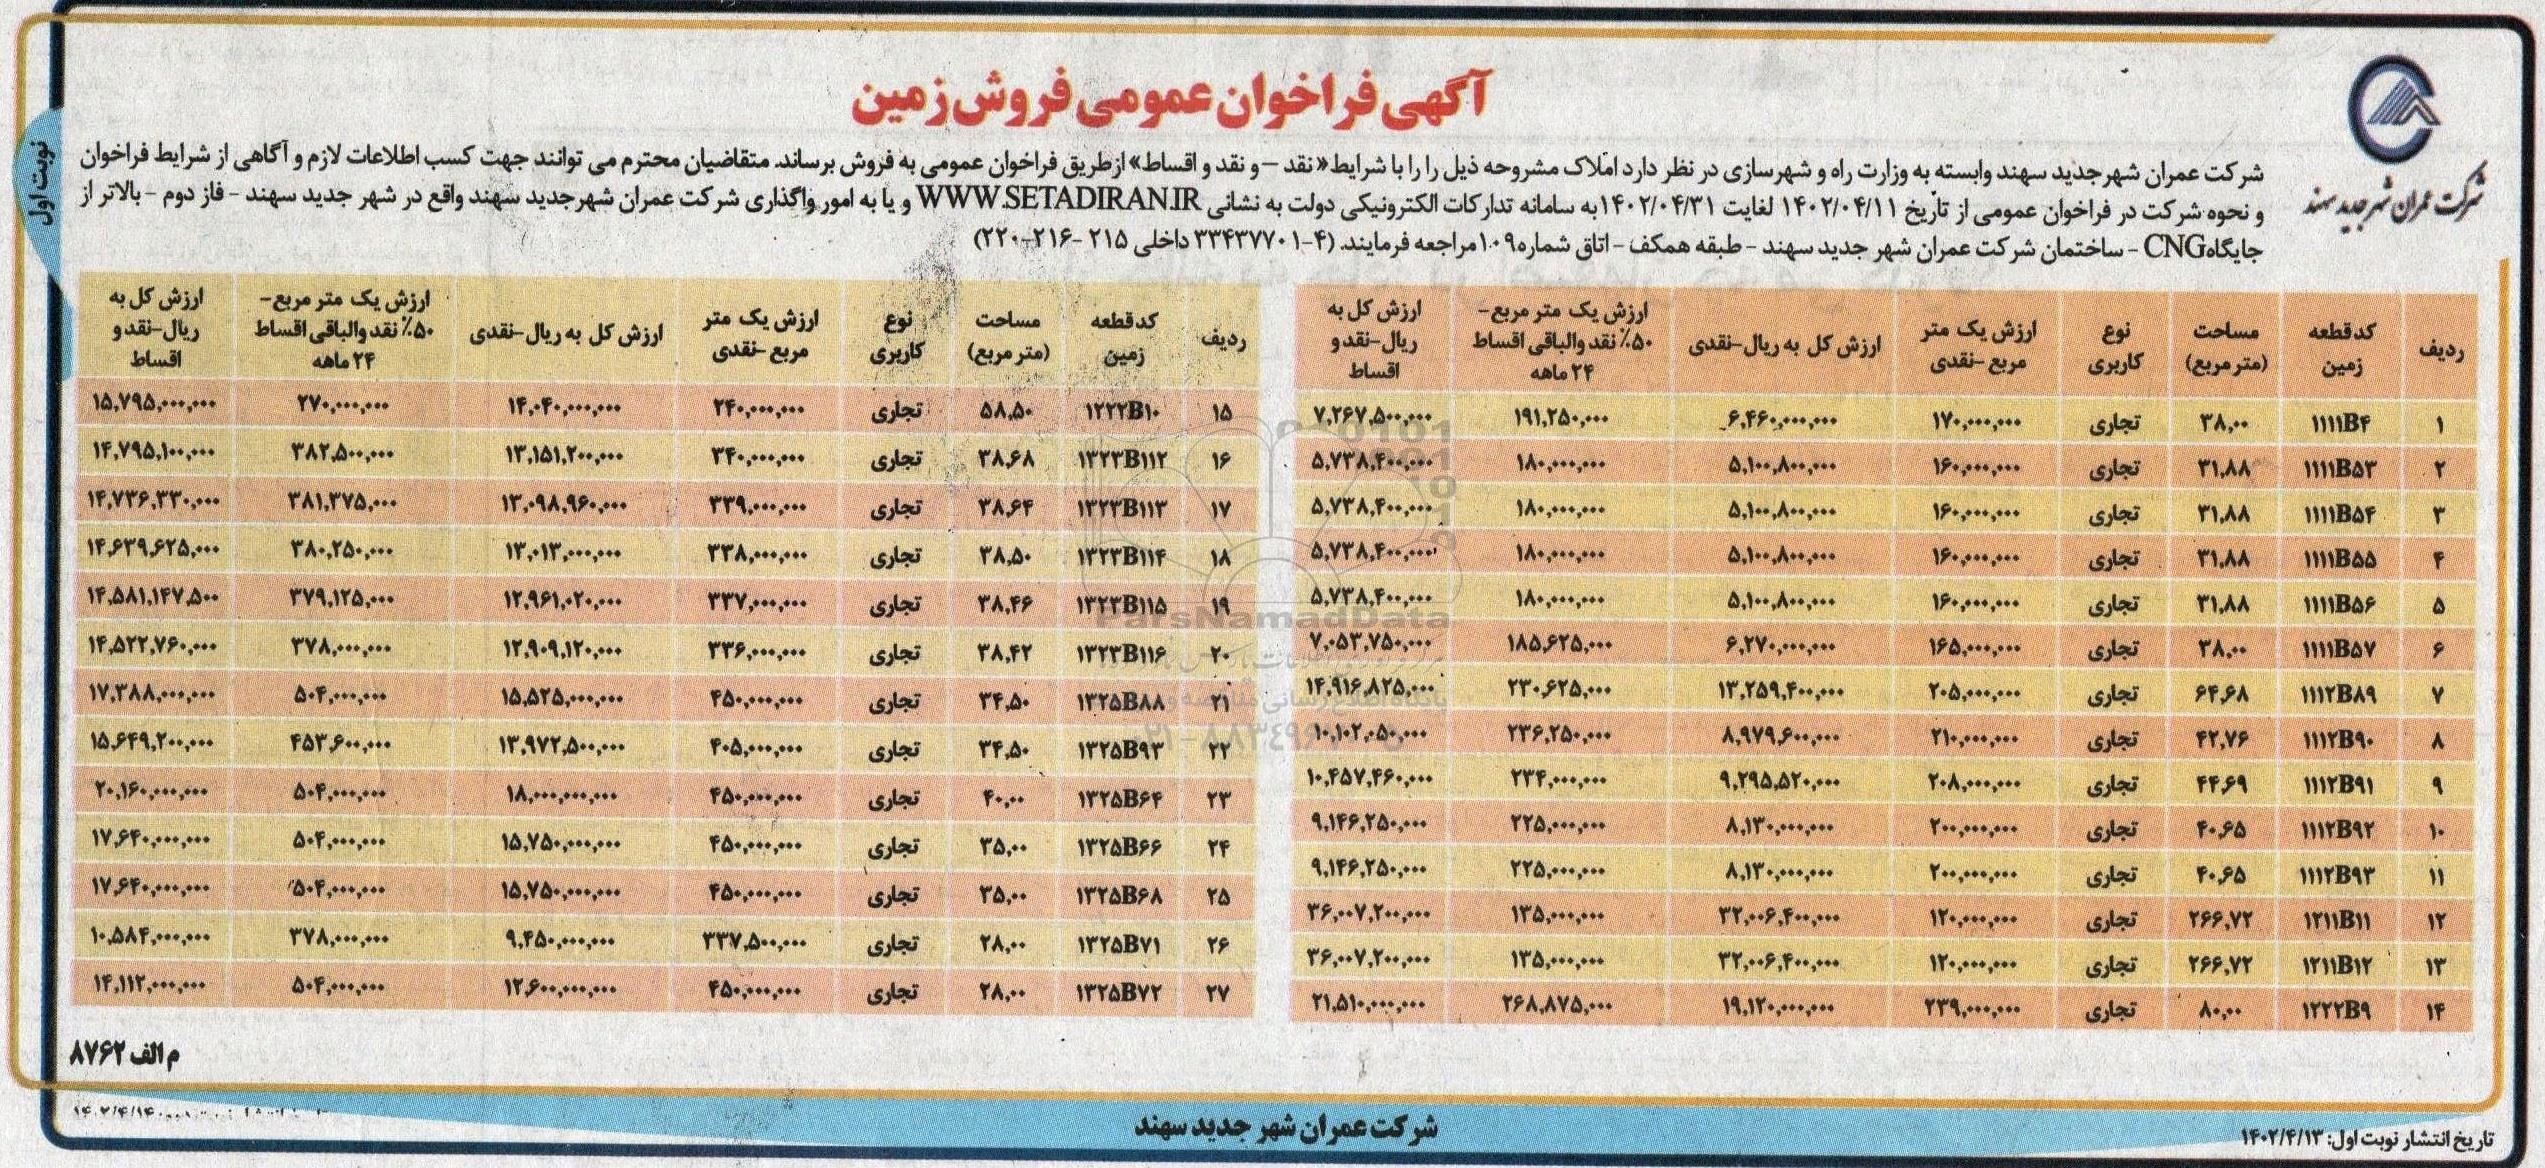 آگهی فراخوان عمومی فروش زمین
شرکت عمران شهر جدید سهند
نوبت اول
شرکت عمران شهرجدید سهند وابسته به وزارت راه و شهرسازی در نظر دارد املاک مشروحه ذیل را را با شرایط « نقد – و نقد و اقساط» ازطریق فراخوان عمومی به فروش برساند. متقاضیان محترم می توانند جهت کسب اطلاعات لازم و آگاهی از شرایط فراخوان
و نحوه شرکت در فراخوان عمومی از تاریخ ۱۴۰۲/۰۴/۱۱ لغایت ۱۴۰۲/۰۴/۳۱به سامانه تدارکات الکترونیکی دولت به نشانی WWW.SETADIRAN.IR و یا به امور واگذاری شرکت عمران شهرجدید سهند واقع در شهر جدید سهند – فاز دوم – بالاتر از
جایگاهCNG – ساختمان شرکت عمران شهر جدید سهند – طبقه همکف – اتاق شماره۱۰۹مراجعه فرمایند. (۴-۳۳۴۳۷۷۰۱ داخلی ۲۱۵ -۲۱۶-۲۲۰)
ردیف کدقطعه زمین مساحت (مترمربع) نوع کاربری ارزش یک متر مربع-نقدی ارزش کل به ریال-نقدی ارزش یک متر مربع- ۵۰٪ نقد والباقی اقساط ۲۴ ماهه ارزش کل به ریال-نقد و اقساط
۱ ۱۱۱۱B۴ ۳۸,۰۰ تجاری ۱۷۰,۰۰۰,۰۰۰ ۶,۴۶۰,۰۰۰,۰۰۰ ۱۹۱,۲۵۰,۰۰۰ ۷,۲۶۷,۵۰۰,۰۰۰
۲ ۱۱۱۱B۵۳ ۳۱,۸۸ تجاری ۱۶۰,۰۰۰,۰۰۰ ۵,۱۰۰,۸۰۰,۰۰۰ ۱۸۰,۰۰۰,۰۰۰ ۵,۷۳۸,۴۰۰,۰۰۰
۳ ۱۱۱۱B۵۴ ۳۱,۸۸ تجاری ۱۶۰,۰۰۰,۰۰۰ ۵,۱۰۰,۸۰۰,۰۰۰ ۱۸۰,۰۰۰,۰۰۰ ۵,۷۳۸,۴۰۰,۰۰۰
۴ ۱۱۱۱B۵۵ ۳۱,۸۸ تجاری ۱۶۰,۰۰۰,۰۰۰ ۵,۱۰۰,۸۰۰,۰۰۰ ۱۸۰,۰۰۰,۰۰۰ ۵,۷۳۸,۴۰۰,۰۰۰
۵ ۱۱۱۱B۵۶ ۳۱,۸۸ تجاری ۱۶۰,۰۰۰,۰۰۰ ۵,۱۰۰,۸۰۰,۰۰۰ ۱۸۰,۰۰۰,۰۰۰ ۵,۷۳۸,۴۰۰,۰۰۰
۶ ۱۱۱۱B۵۷ ۳۸,۰۰ تجاری ۱۶۵,۰۰۰,۰۰۰ ۶,۲۷۰,۰۰۰,۰۰۰ ۱۸۵,۶۲۵,۰۰۰ ۷,۰۵۳,۷۵۰,۰۰۰
۷ ۱۱۱۲B۸۹ ۶۴,۶۸ تجاری ۲۰۵,۰۰۰,۰۰۰ ۱۳,۲۵۹,۴۰۰,۰۰۰ ۲۳۰,۶۲۵,۰۰۰ ۱۴,۹۱۶,۸۲۵,۰۰۰
۸ ۱۱۱۲B۹۰ ۴۲,۷۶ تجاری ۲۱۰,۰۰۰,۰۰۰ ۸,۹۷۹,۶۰۰,۰۰۰ ۲۳۶,۲۵۰,۰۰۰ ۱۰,۱۰۲,۰۵۰,۰۰۰
۹ ۱۱۱۲B۹۱ ۴۴,۶۹ تجاری ۲۰۸,۰۰۰,۰۰۰ ۹,۲۹۵,۵۲۰,۰۰۰ ۲۳۴,۰۰۰,۰۰۰ ۱۰,۴۵۷,۴۶۰,۰۰۰
۱۰ ۱۱۱۲B۹۲ ۴۰,۶۵ تجاری ۲۰۰,۰۰۰,۰۰۰ ۸,۱۳۰,۰۰۰,۰۰۰ ۲۲۵,۰۰۰,۰۰۰ ۹,۱۴۶,۲۵۰,۰۰۰
۱۱ ۱۱۱۲B۹۳ ۴۰,۶۵ تجاری ۲۰۰,۰۰۰,۰۰۰ ۸,۱۳۰,۰۰۰,۰۰۰ ۲۲۵,۰۰۰,۰۰۰ ۹,۱۴۶,۲۵۰,۰۰۰
۱۲ ۱۲۱۱B۱۱ ۲۶۶,۷۲ تجاری ۱۲۰,۰۰۰,۰۰۰ ۳۲,۰۰۶,۴۰۰,۰۰۰ ۱۳۵,۰۰۰,۰۰۰ ۳۶,۰۰۷,۲۰۰,۰۰۰
۱۳ ۱۲۱۱B۱۲ ۲۶۶,۷۲ تجاری ۱۲۰,۰۰۰,۰۰۰ ۳۲,۰۰۶,۴۰۰,۰۰۰ ۱۳۵,۰۰۰,۰۰۰ ۳۶,۰۰۷,۲۰۰,۰۰۰
۱۴ ۱۲۲۲B۹ ۸۰,۰۰ تجاری ۲۳۹,۰۰۰,۰۰۰ ۱۹,۱۲۰,۰۰۰,۰۰۰ ۲۶۸,۸۷۵,۰۰۰ ۲۱,۵۱۰,۰۰۰,۰۰۰
ردیف کدقطعه زمین مساحت (مترمربع) نوع کاربری ارزش یک متر مربع-نقدی ارزش کل به ریال-نقدی ارزش یک متر مربع- ۵۰٪ نقد والباقی اقساط ۲۴ ماهه ارزش کل به ریال-نقد و اقساط
۱۵ ۱۲۲۲B۱۰ ۵۸,۵۰ تجاری ۲۴۰,۰۰۰,۰۰۰ ۱۴,۰۴۰,۰۰۰,۰۰۰ ۲۷۰,۰۰۰,۰۰۰ ۱۵,۷۹۵,۰۰۰,۰۰۰
۱۶ ۱۳۲۳B۱۱۲ ۳۸,۶۸ تجاری ۳۴۰,۰۰۰,۰۰۰ ۱۳,۱۵۱,۲۰۰,۰۰۰ ۳۸۲,۵۰۰,۰۰۰ ۱۴,۷۹۵,۱۰۰,۰۰۰
۱۷ ۱۳۲۳B۱۱۳ ۳۸,۶۴ تجاری ۳۳۹,۰۰۰,۰۰۰ ۱۳,۰۹۸,۹۶۰,۰۰۰ ۳۸۱,۳۷۵,۰۰۰ ۱۴,۷۳۶,۳۳۰,۰۰۰
۱۸ ۱۳۲۳B۱۱۴ ۳۸,۵۰ تجاری ۳۳۸,۰۰۰,۰۰۰ ۱۳,۰۱۳,۰۰۰,۰۰۰ ۳۸۰,۲۵۰,۰۰۰ ۱۴,۶۳۹,۶۲۵,۰۰۰
۱۹ ۱۳۲۳B۱۱۵ ۳۸,۴۶ تجاری ۳۳۷,۰۰۰,۰۰۰ ۱۲,۹۶۱,۰۲۰,۰۰۰ ۳۷۹,۱۲۵,۰۰۰ ۱۴,۵۸۱,۱۴۷,۵۰۰
۲۰ ۱۳۲۳B۱۱۶ ۳۸,۴۲ تجاری ۳۳۶,۰۰۰,۰۰۰ ۱۲,۹۰۹,۱۲۰,۰۰۰ ۳۷۸,۰۰۰,۰۰۰ ۱۴,۵۲۲,۷۶۰,۰۰۰
۲۱ ۱۳۲۵B۸۸ ۳۴,۵۰ تجاری ۴۵۰,۰۰۰,۰۰۰ ۱۵,۵۲۵,۰۰۰,۰۰۰ ۵۰۴,۰۰۰,۰۰۰ ۱۷,۳۸۸,۰۰۰,۰۰۰
۲۲ ۱۳۲۵B۹۳ ۳۴,۵۰ تجاری ۴۰۵,۰۰۰,۰۰۰ ۱۳,۹۷۲,۵۰۰,۰۰۰ ۴۵۳,۶۰۰,۰۰۰ ۱۵,۶۴۹,۲۰۰,۰۰۰
۲۳ ۱۳۲۵B۶۴ ۴۰,۰۰ تجاری ۴۵۰,۰۰۰,۰۰۰ ۱۸,۰۰۰,۰۰۰,۰۰۰ ۵۰۴,۰۰۰,۰۰۰ ۲۰,۱۶۰,۰۰۰,۰۰۰
۲۴ ۱۳۲۵B۶۶ ۳۵,۰۰ تجاری ۴۵۰,۰۰۰,۰۰۰ ۱۵,۷۵۰,۰۰۰,۰۰۰ ۵۰۴,۰۰۰,۰۰۰ ۱۷,۶۴۰,۰۰۰,۰۰۰
۲۵ ۱۳۲۵B۶۸ ۳۵,۰۰ تجاری ۴۵۰,۰۰۰,۰۰۰ ۱۵,۷۵۰,۰۰۰,۰۰۰ ۵۰۴,۰۰۰,۰۰۰ ۱۷,۶۴۰,۰۰۰,۰۰۰
۲۶ ۱۳۲۵B۷۱ ۲۸,۰۰ تجاری ۳۳۷,۵۰۰,۰۰۰ ۹,۴۵۰,۰۰۰,۰۰۰ ۳۷۸,۰۰۰,۰۰۰ ۱۰,۵۸۴,۰۰۰,۰۰۰
۲۷ ۱۳۲۵B۷۲ ۲۸,۰۰ تجاری ۴۵۰,۰۰۰,۰۰۰ ۱۲,۶۰۰,۰۰۰,۰۰۰ ۵۰۴,۰۰۰,۰۰۰ ۱۴,۱۱۲,۰۰۰,۰۰۰
ParsNamadData
م الف ۸۷۶۲
شرکت عمران شهر جدید سهند
تاریخ انتشار نوبت اول: ۱۴۰۲/۴/۱۳